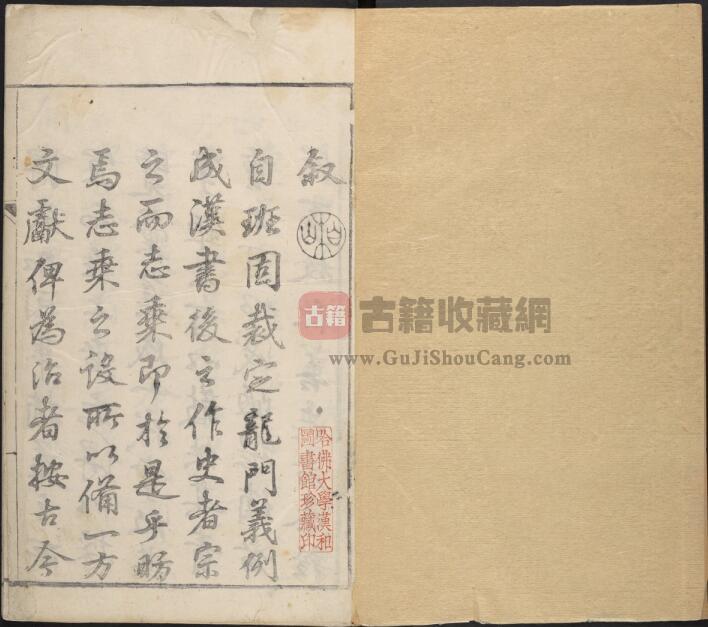 叙
自班固裁定龍門義例
成漢書後之作史者宗
之而志乗即於是乎昉
焉志乗之設所以備一方
文獻俾為治者按古今
哈佛大學漢和
圖書館珍藏印
古籍
古籍收藏網
www.GuJiShouCang.com